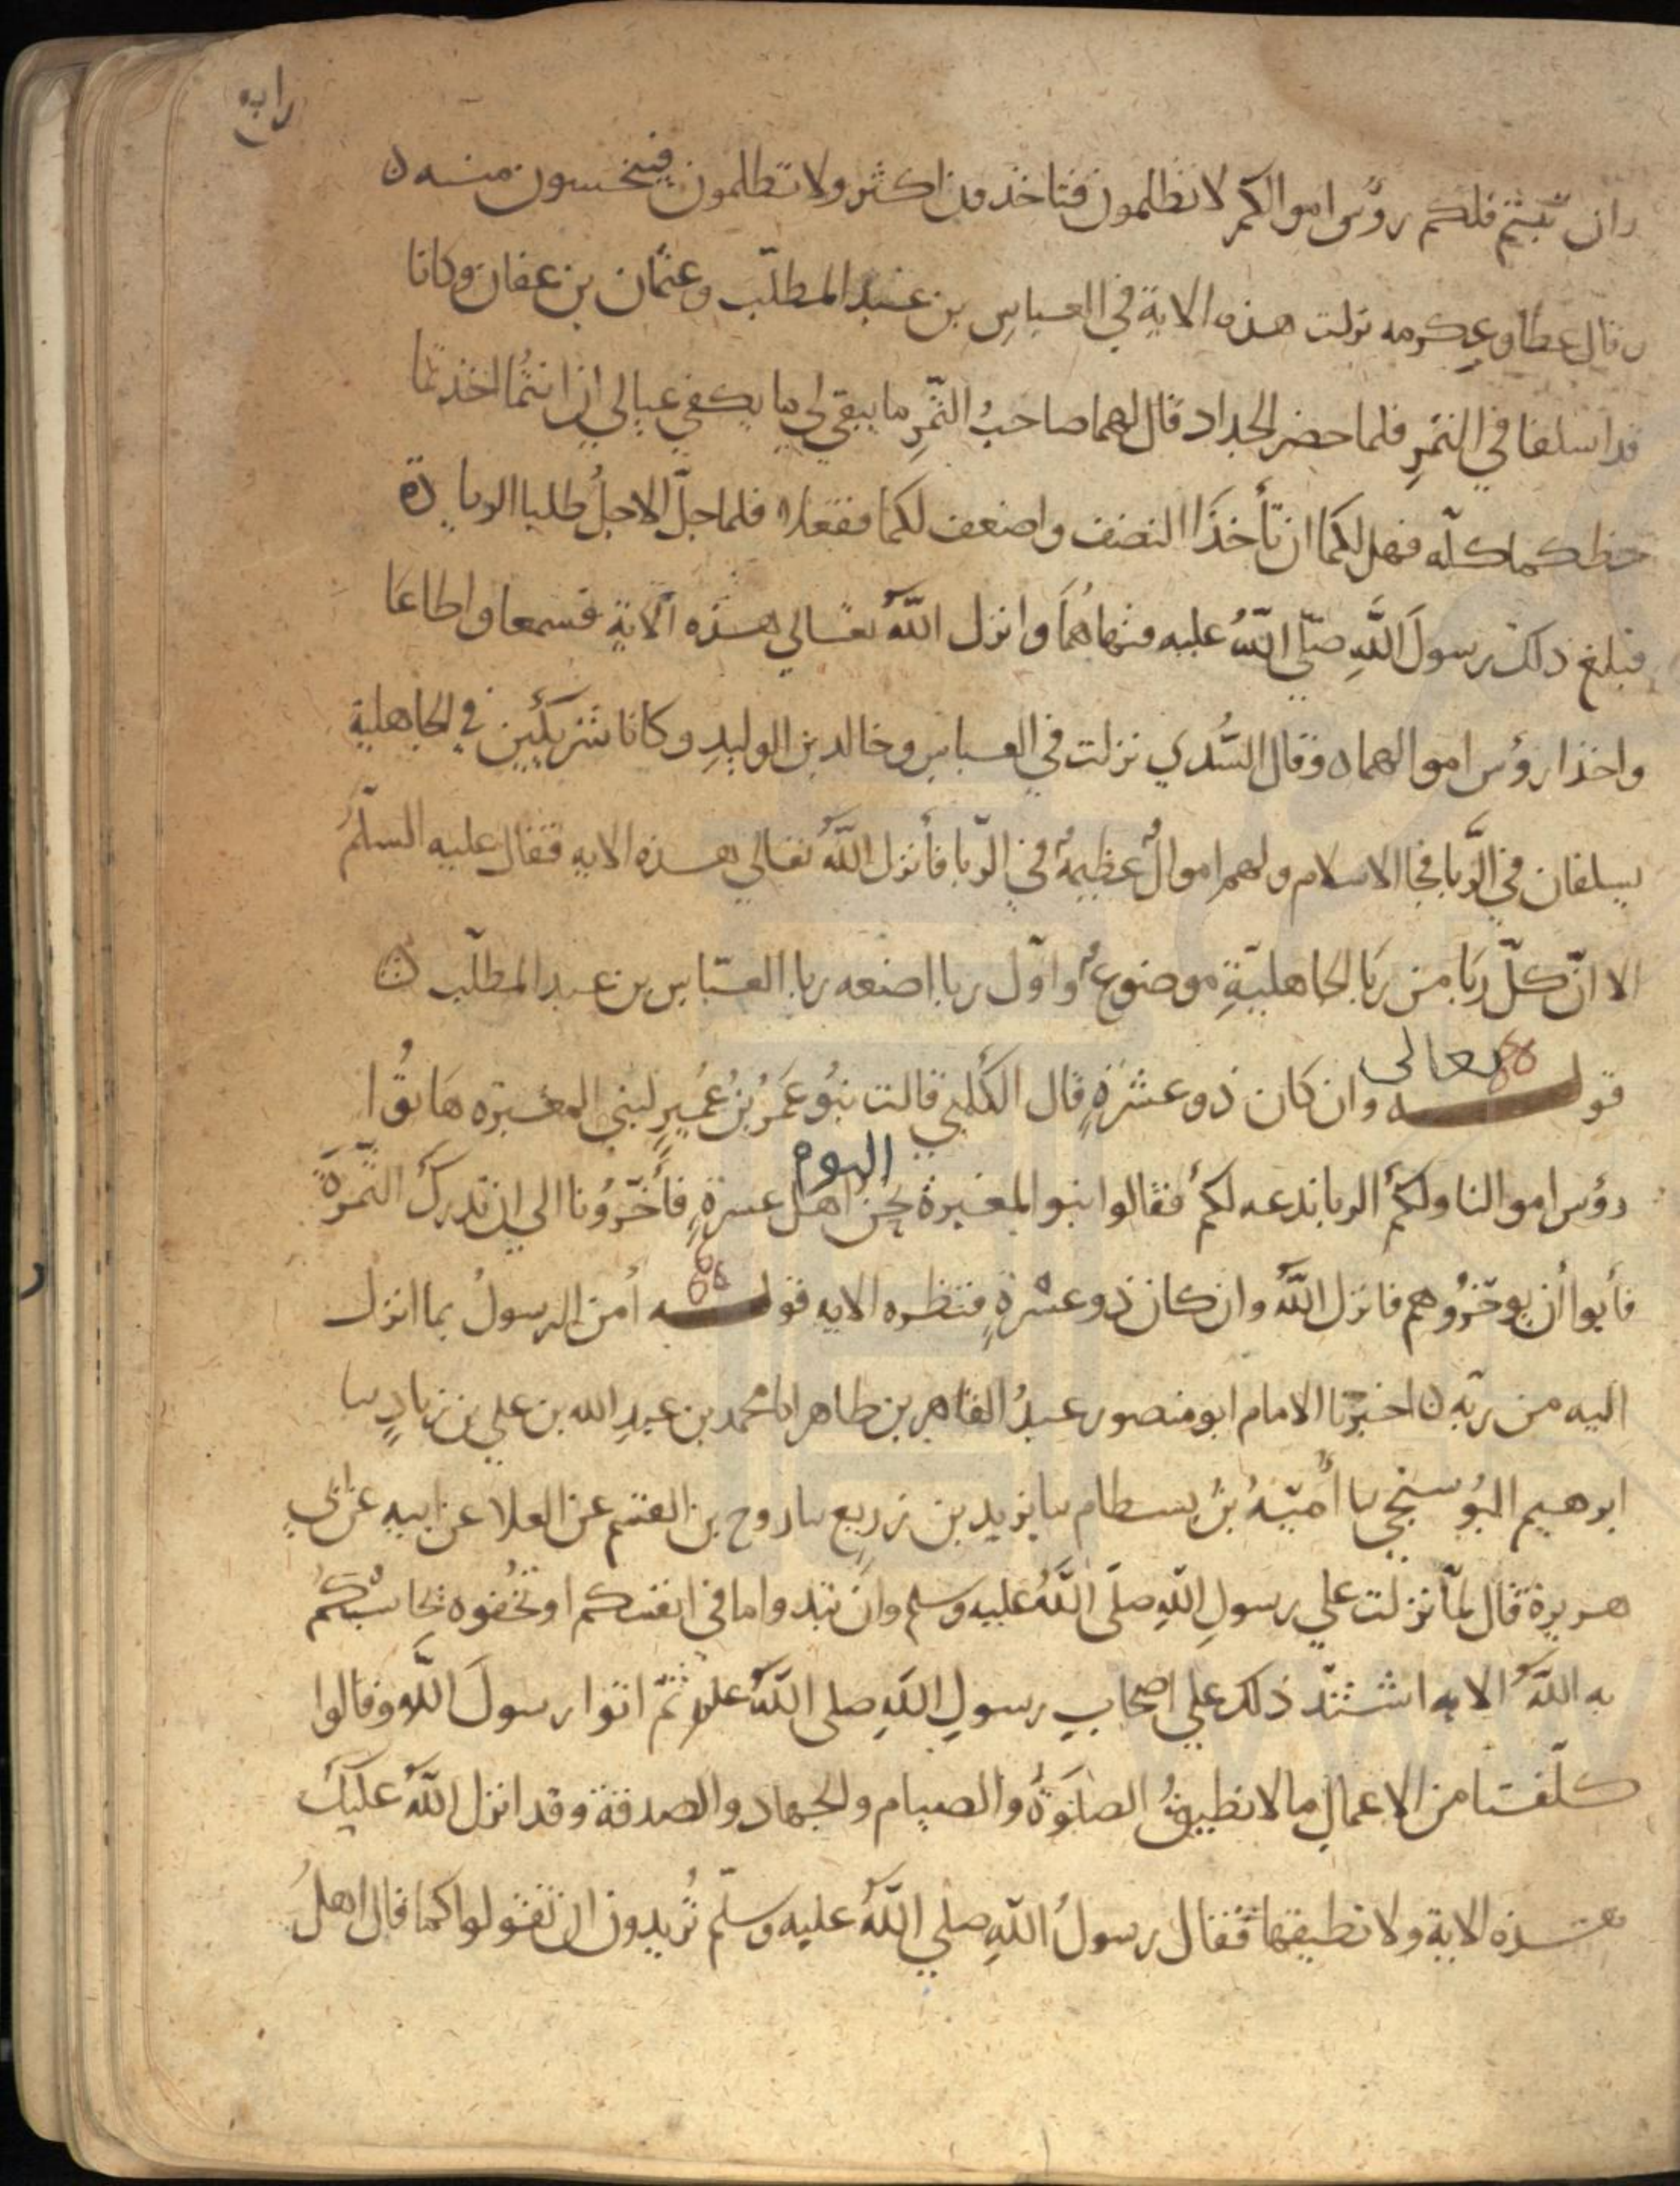 رابع
وان تبتم فلكم رؤس اموالكم لا تظلمون فتاخذون اكثر ولا تظلمون فيبخسون منه ن
وقال عطا وعكرمه نزلت هذه الاية في العباس بن عبد المطلّب وعثمان بن عفان وكانا
قد اسلفا في التمر فلما حضر الجداد قال لهما صاحب التمر ما يبقى لي ما يكفي عيالي ان انتما اخذتما
حظكما كله فهل لكما ان تأخذا النصف واضعف لكما ففعلا فلما حلّ الاجل طلبا الزيادة
فبلغ ذلك رسولَ اللّهِ صلّى اللّهُ عليه فنهاهُمَا وانزل اللّهُ تعالى هذه الآية فسمعا واطاعَا
واخذا رؤس اموالهما ه وقال السُّدي نزلت في العباس وخالد بن الوليدِ وكانا شريكَين في الجاهلية
يسلفان في الرِّبا فجا الاسلام ولهم اموالٌ عظيمةٌ في الرّبا فأنزل اللّهُ تعالى هذه الايه فقال عليه السلم
الا انّ كلّ ربًا من ربَا الجاهليّةِ موضوعٌ واوّل ربا اضعه ربا العبّاس بن عبد المطلّب ن
قوله تعالى وان كان ذو عسرةٍ قال الكلبي قالت بنُو عَمرُ بنُ عُميرٍ لبني المغيره هَاتُوا
رؤس اموالنا ولكمُ الربا ندعه لكمُ فقالوا بنو المغيرة نحن اليوم اهل عسرةٍ فأخّرُونا الى ان تدركَ الثّمرَةَ
فأبوا أن يوخّرُوهم فانزل اللّهُ وان كان ذو عسْرةٍ فنظره الايه قوله أمن الرسولُ بما انزل
اليه من ربّه ن اخبرنا الامام ابو منصور عبدُ القاهر بن طاهر انا محمد بن عبدِ الله بن علي بن زيادٍ نا
ابرهيم البُوسنجي نا أُميّةُ بنُ بسطام نا يزيد بن زريع نا روح بن القسم عن العلا عن ابيه عن ابي
هريرة قال لمّا نزلت علي رسولِ اللّهِ صلّى اللّهُ عليه وسلم وان تبدوا ما في انفسكم او تخفوه يحاسبكم
به اللّهُ الايه اشتدّ ذلك علي اصحابِ رسولِ اللّهِ صلى اللّهُ عليه ثمّ اتوا رسولَ اللّهِ وقالوا
كلّفنا من الاعمالِ ما لا نطيقُ الصلوَةُ والصيام والجهاد والصدقة وقد انزل اللّهُ عليكَ
هذه الاية ولا نطيقها فقال رسولُ اللّهِ صلي اللّهُ عليه وسلّم تُريدون ان تقولوا كما قال اهلُ